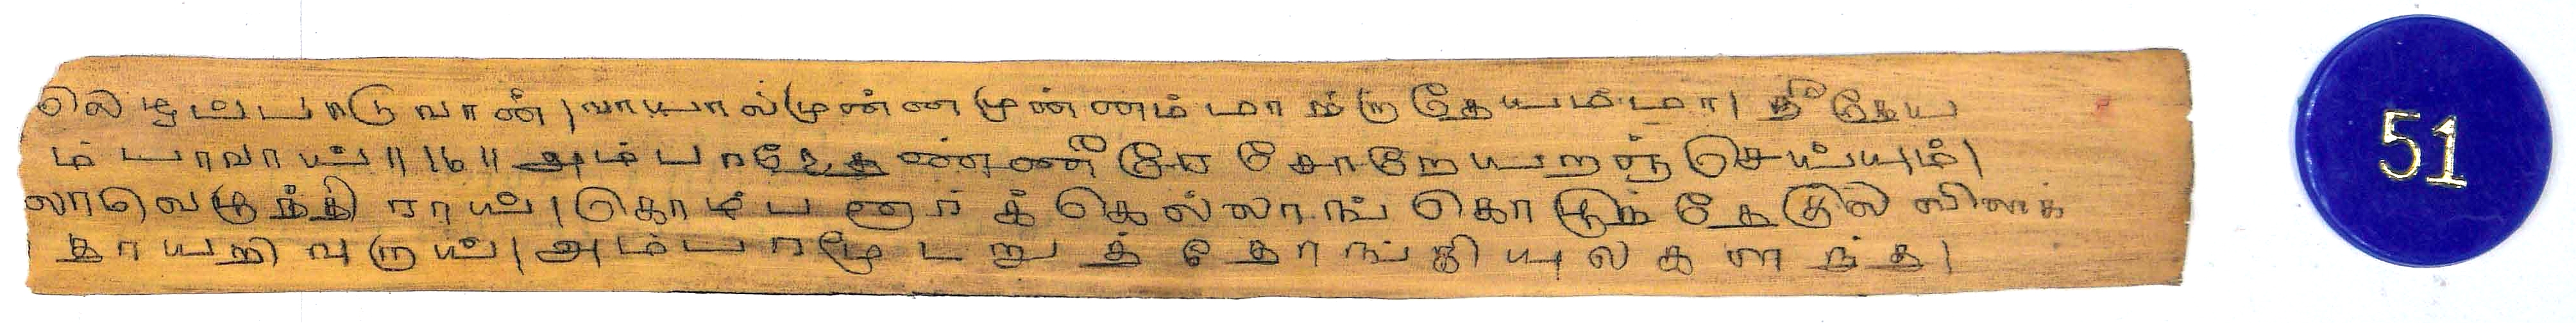 லெழுப்பாடுவான்|வாயால்முன்னமுன்னம்மாற்றாதேயம்மா|நீநேய
ம் யாவாய்||16||அம்பரமேதண்ணீரேசோறேயறஞ்செய்யும்|
லாலெழுந்திராய்|கொம்பனார்க்கெல்லாங்கொழுந்தேகுலவிளக்
தாயறிவுறாய்|அம்பரமூடறுத்தோங்கியுலகளந்த|
51